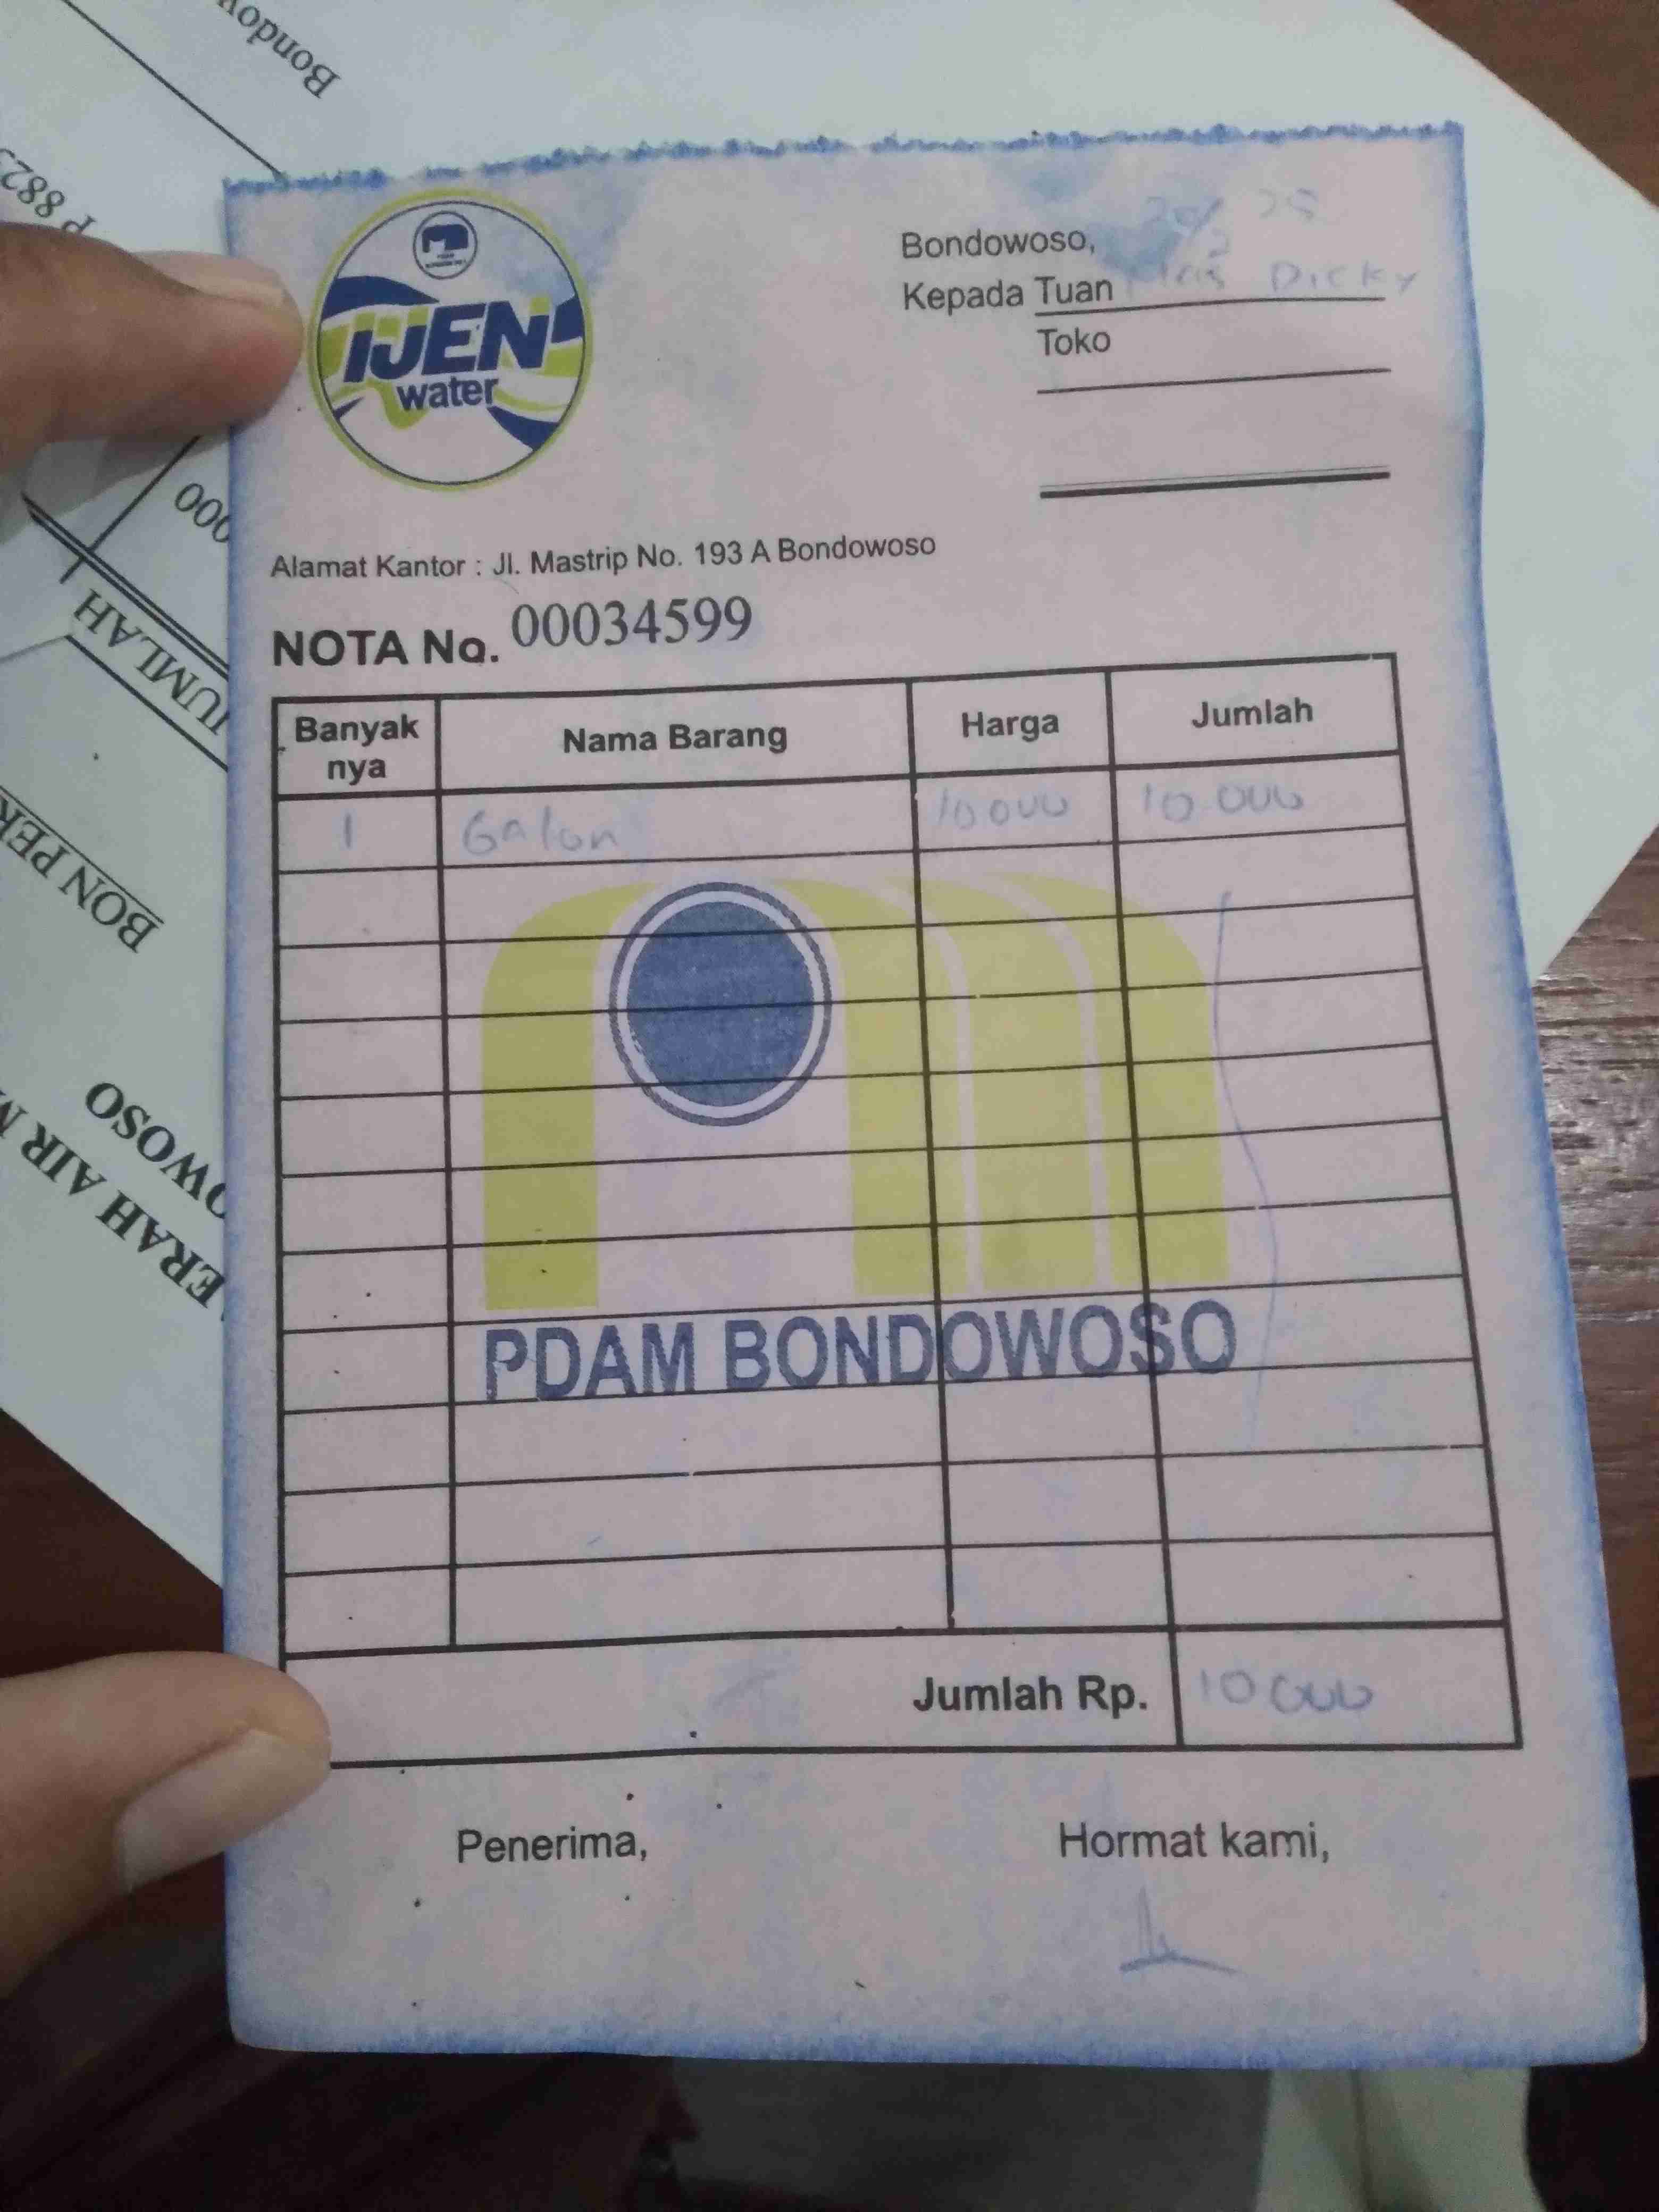 IJEN
water
Bondowoso, 25
Kepada Tuan Mas Dicky
Toko
Alamat Kantor : Jl. Mastrip No. 193 A Bondowoso
NOTA No. 00034599
Banyak nya Nama Barang Harga Jumlah
1 Galon 10.000 10.000
PDAM BONDOWOSO
Jumlah Rp. 10.000
Penerima, Hormat kami,
Bondow
P 882
000
JUMLAH
BON PER
ERAH AIR M
OWOSO